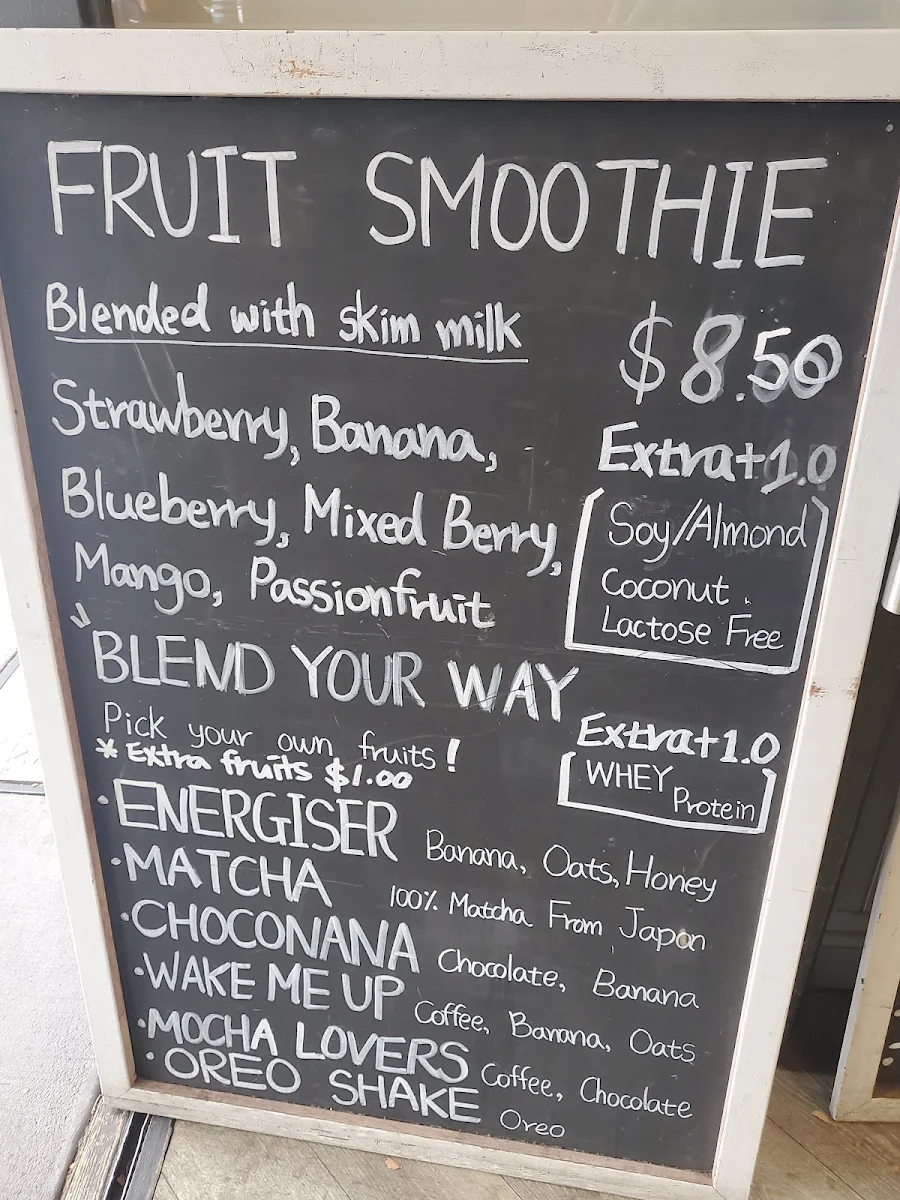 FRUIT SMOOTHIE
Blended with skim milk
$8.50
Strawberry, Banana,
Blueberry, Mixed Berry,
Mango, Passionfruit
Extra+1.0
Soy/Almond
Coconut
Lactose Free
BLEND YOUR WAY
Pick your own fruits!
* Extra fruits $1.00
Extra+1.0
WHEY
Protein
· ENERGISER Banana, Oats, Honey
· MATCHA 100% Matcha From Japan
· CHOCONANA Chocolate, Banana
· WAKE ME UP Coffee, Banana, Oats
· MOCHA LOVERS Coffee, Chocolate
· OREO SHAKE Oreo